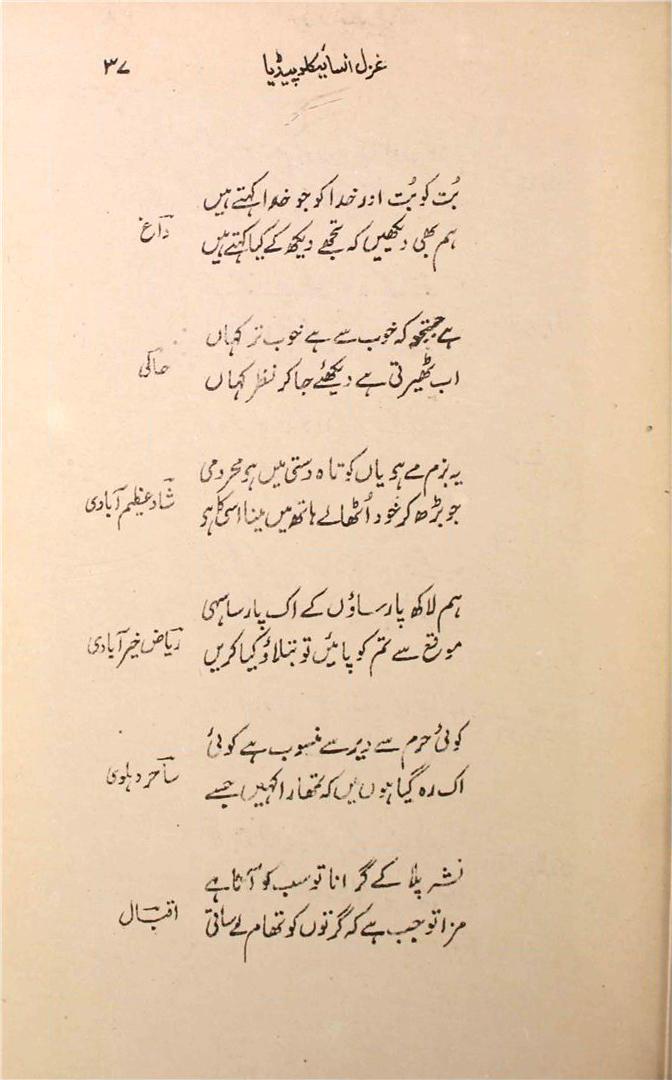 غزل انسائیکلوپیڈیا ۳۷
بُت کو بُت اور خدا کو جو خدا کہتے ہیں
ہم بھی دیکھیں کہ تجھے دیکھ کے کیا کہتے ہیں
داغ
ہے جستجو کہ خوب سے ہے خوب تر کہاں
اب ٹھیرتی ہے دیکھئے جا کر نظر کہاں
حالی
یہ بزم مے ہو یاں کوتاہ دستی میں ہو محرومی
جو بڑھ کر خود اُٹھالے ہاتھ میں مینا اسی کا ہو
شاد عظیم آبادی
ہم لاکھ پارساؤں کے اک پارسا سہی
موقع سے تم کو پائیں تو بتلاؤ کیا کریں
ریاض خیرآبادی
کوئی حرم سے دیر سے منسوب ہے کوئی
اک رہ گیا ہوں میں کہ تمھارا کہیں جسے
ساحر دہلوی
نشہ پلا کے گرانا تو سب کو آتا ہے
مزا تو جب ہے کہ گرتوں کو تھام لے ساقی
اقبال